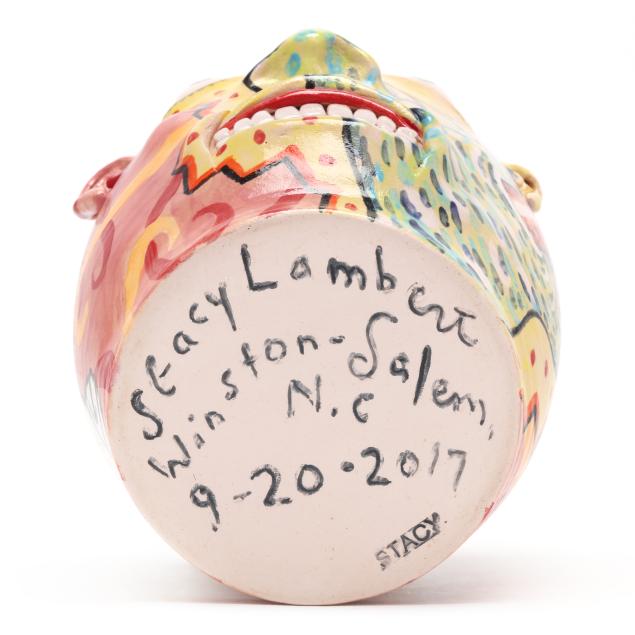 Stacy Lambert
Winston-Salem,
N.C
9-20-2017
STACY